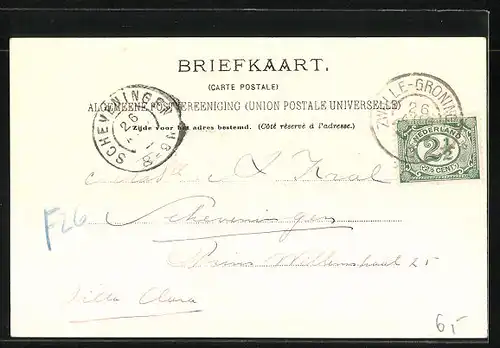 BRIEFKAART.
(CARTE POSTALE)
ALGEMEENE POSTVEREENIGING (UNION POSTALE UNIVERSELLE)
Zijde voor het adres bestemd. (Côté réservé à l'adresse.)
SCHEVENINGEN
26
8-9
ZWOLLE-GRONING
26
NEDERLAND
2½
(2½ CENT)
Kral
Scheveningen
Prins Willemstraat 25
Villa Clara
F26
6,-